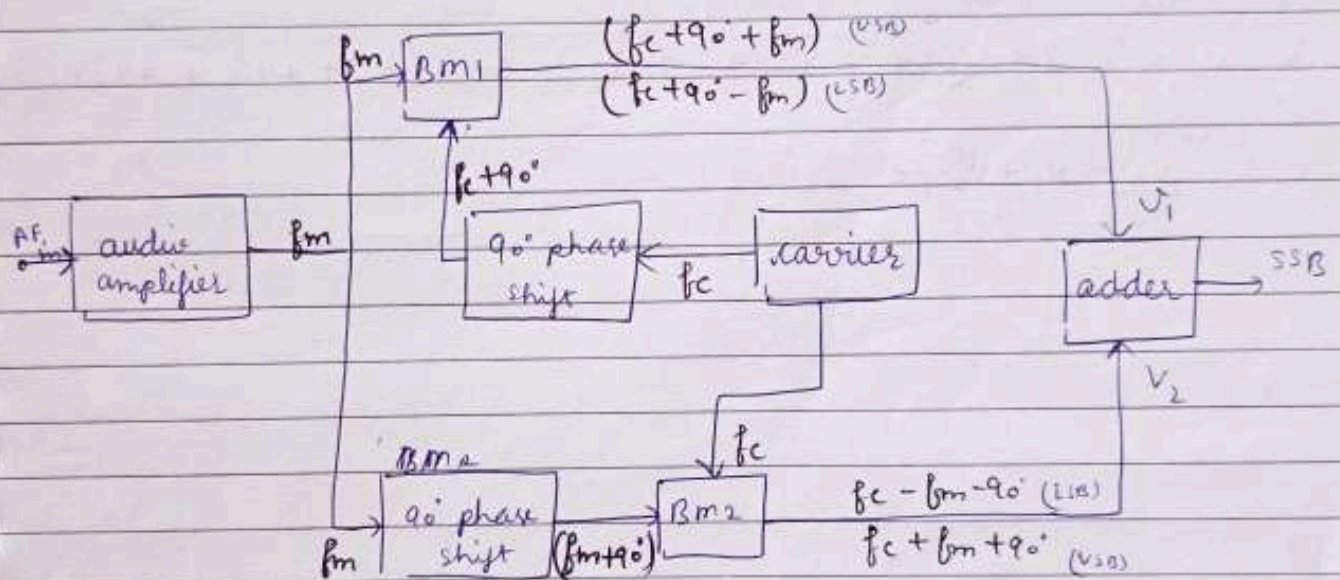 (fc+90°+fm) (USB)
fm
BM1
(fc+90°-fm) (LSB)
fc+90°
AF in
audio
amplifier
fm
90° phase
shift
fc
carrier
V1
adder
SSB
V2
fc
90° phase
shift
fm
(fm+90°)
BM2
fc - fm - 90° (LSB)
fc + fm + 90° (USB)